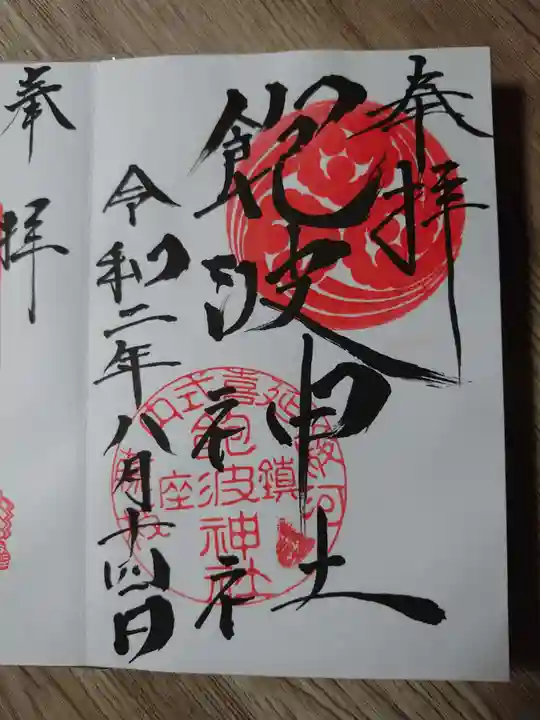 奉拝
飽波神社
令和二年八月十四日
延喜式
駿河
鎮座
飽波神社
奉拝